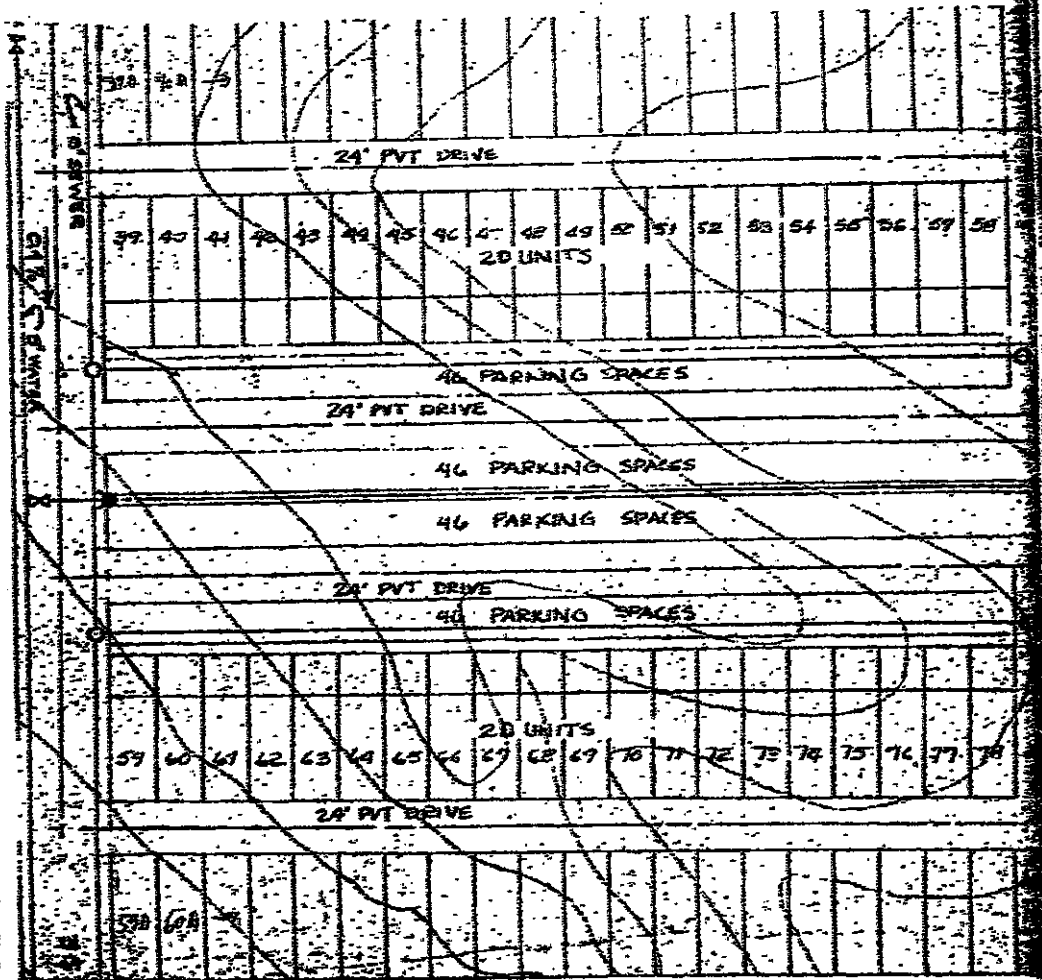 24' PVT DRIVE
39 40 41 42 43 44 45 46 47 48 49 50 51 52 53 54 55 56 57 58
20 UNITS
46 PARKING SPACES
24' PVT DRIVE
46 PARKING SPACES
46 PARKING SPACES
24' PVT DRIVE
46 PARKING SPACES
20 UNITS
59 60 61 62 63 64 65 66 67 68 69 70 71 72 73 74 75 76 77 78
24' PVT DRIVE
59A 60A
8" SEWER
8" WATER